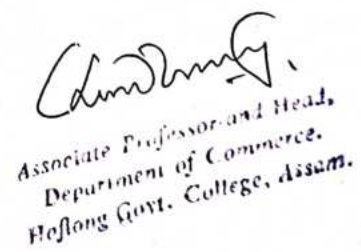 Associate Professor and Head,
Department of Commerce.
Hoflong Govt. College, Assam.